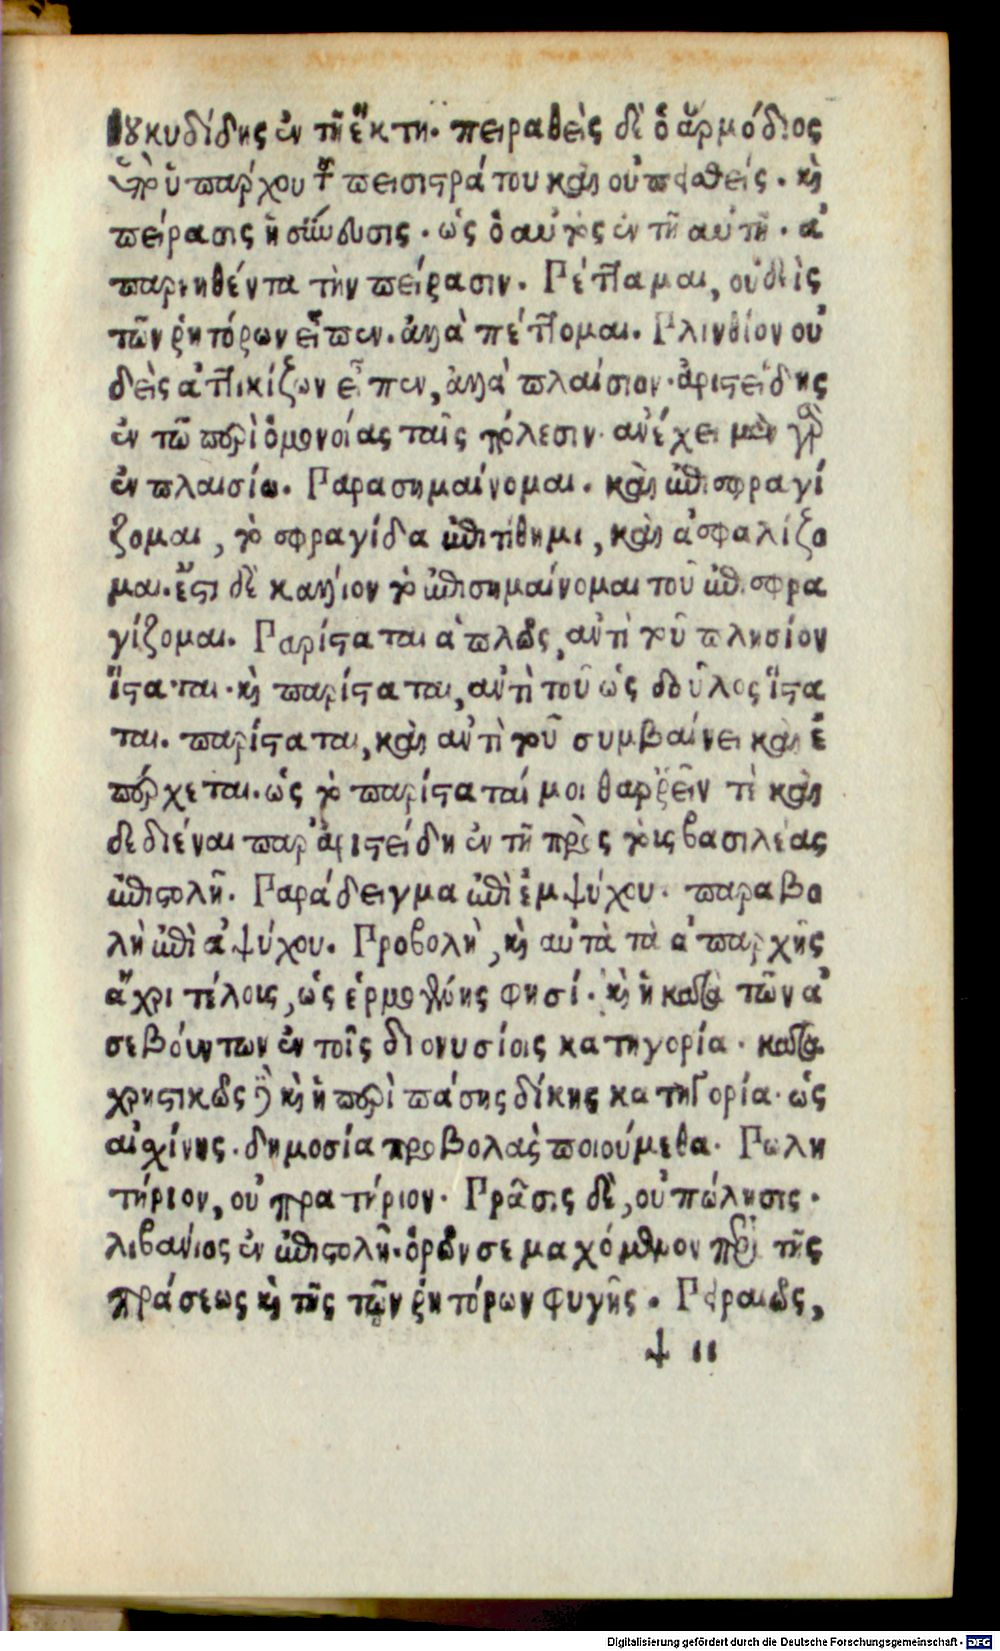 θουκυδίδης ἐν τῇ ἕκτῃ. πειραθεὶς δὲ ὁ ἁρμόδιος
ὑπὸ ἱππάρχου τοῦ πεισιστράτου καὶ οὐ πεισθείς. καὶ
πείρασις ἡ σύνδυσις. ὡς ὁ αὐτὸς ἐν τῇ αὐτῇ. ἀ
παρνηθέντα τὴν πείρασιν. Πέπταμαι, οὐδεὶς
τῶν ῥητόρων εἶπεν. ἀλλὰ πέπτομαι. Πλινθίον οὐ
δεὶς ἀττικίζων εἶπεν, ἀλλὰ πλαίσιον. ἀριστείδης
ἐν τῷ περὶ ὁμονοίας ταῖς πόλεσιν. ἀνέχει μὲν γὰρ
ἐν πλαισίω. Παρασημαίνομαι. καὶ ἐπισφραγί
ζομαι, τὸ σφραγίδα ἐπιτίθημι, καὶ ἀσφαλίζο
μαι. ἔστι δὲ κάλλιον τὸ ἐπισημαίνομαι τοῦ ἐπισφρα
γίζομαι. Παρίσταται ἁπλῶς, ἀντὶ τοῦ πλησίον
ἵσταται. καὶ παρίσταται, ἀντὶ τοῦ ὡς δοῦλος ἵστα
ται. παρίσταται, καὶ ἀντὶ τοῦ συμβαίνει καὶ ἐ
πέρχεται. ὡς τὸ παρίσταταί μοι θαῤῥεῖν τὲ καὶ
δεδιέναι παρ' ἀριστείδη ἐν τῇ πρὸς τοὺς βασιλέας
ἐπιστολῇ. Παράδειγμα ἐπὶ ἐμψύχου. παραβο
λὴ ἐπὶ ἀψύχου. Προβολὴ, καὶ αὐτὰ τὰ ἀπαρχῆς
ἄχρι τέλους, ὡς ἑρμογένης φησί. καὶ ἡ κατὰ τῶν ἀ
σεβούντων ἐν τοῖς διονυσίοις κατηγορία. κατα
χρηστικῶς δὲ καὶ ἡ περὶ πάσης δίκης κατηγορία. ὡς
αἰχίνης. δημοσία προβολὰς ποιούμεθα. Πωλη
τήριον, οὐ πρατήριον. Πρᾶσις δὲ, οὐ πώλησις.
λιβανίος ἐν ἐπιστολῇ. ὁρῶν σε μαχόμενον περὶ τῆς
πράσεως καὶ τῆς τῶν ῥητόρων φυγῆς. Πεφαιῶς,
ψ ιι
Digitalisierung gefördert durch die Deutsche Forschungsgemeinschaft - DFG